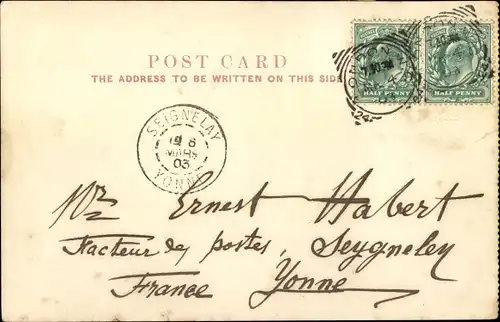 POST CARD
THE ADDRESS TO BE WRITTEN ON THIS SIDE
HALF PENNY HALF PENNY
LONDON
SEIGNELAY
6
MARS
03
YONNE
Mr Ernest Habert
Facteur des postes, Seygneley
France Yonne